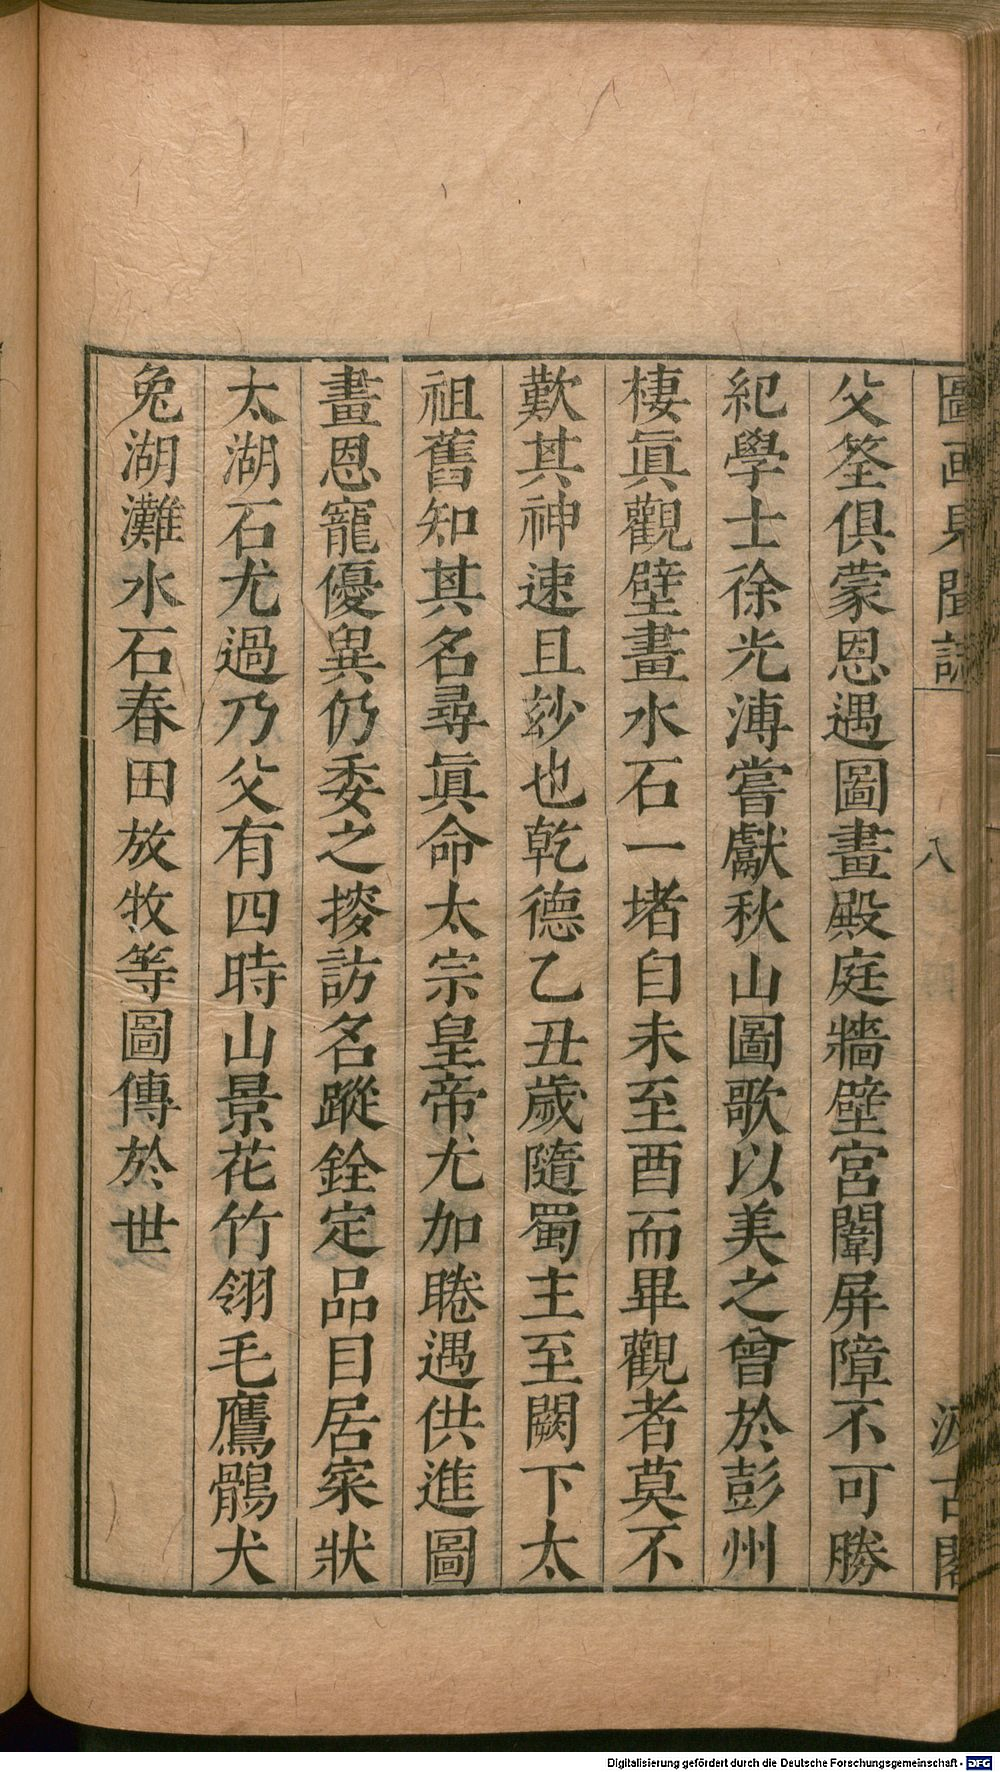 圖画見聞誌
八
汲古閣
父筌俱蒙恩遇圖畫殿庭牆壁宮闈屏障不可勝
紀學士徐光溥嘗獻秋山圖歌以美之曾於彭州
棲眞觀壁畫水石一堵自未至酉而畢觀者莫不
歎其神速且玅也乾德乙丑歲隨蜀主至闕下太
祖舊知其名尋眞命太宗皇帝尤加睠遇供進圖
畫恩寵優異仍委之搜訪名蹤銓定品目居寀狀
太湖石尤過乃父有四時山景花竹翎毛鷹鶻犬
兔湖灘水石春田放牧等圖傳於世
Digitalisierung gefördert durch die Deutsche Forschungsgemeinschaft - DFG